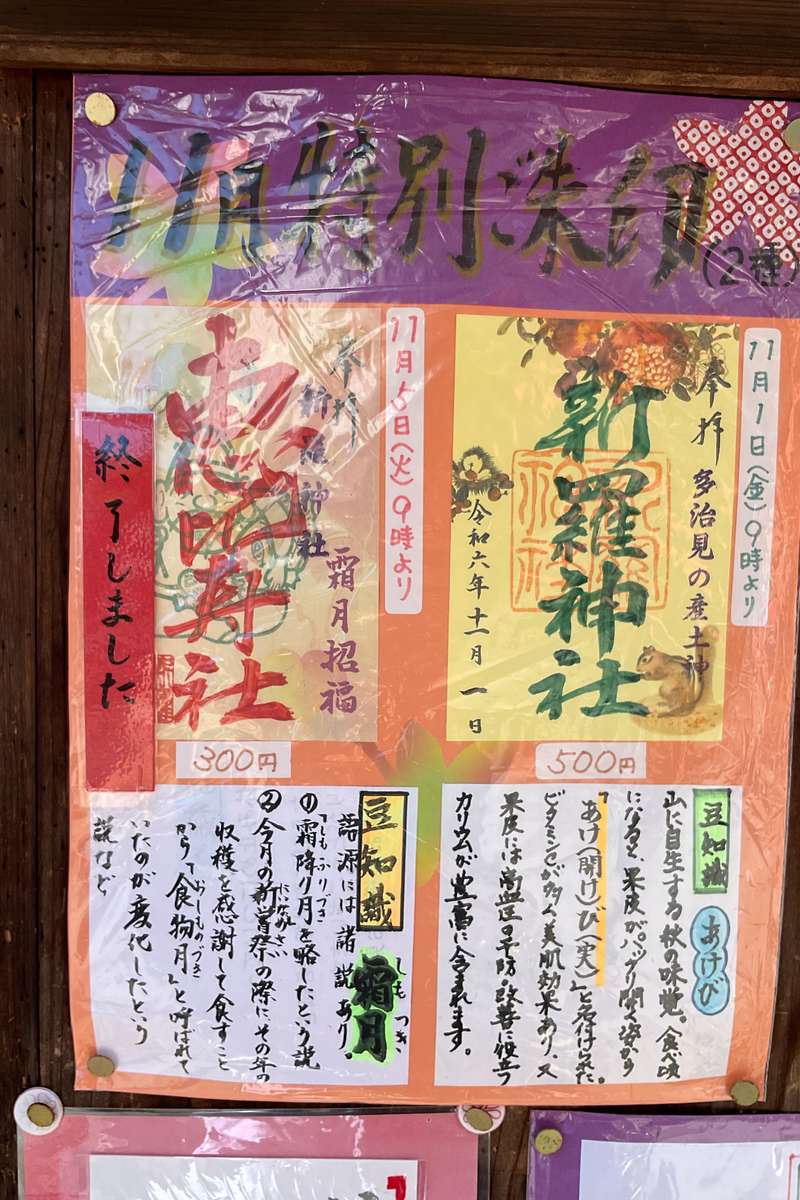 11月特別朱印
(2種)
11月1日(金)9時より
奉拝
多治見の産土神
新羅神社
令和六年十一月一日
500円
11月5日(火)9時より
奉拝
新羅神社
霜月招福
恵比寿社
終了しました
300円
豆知識
あけび
山に自生する秋の味覚。食べ頃
になると、果皮がパックリ開く姿から
「あけ(開け)び(実)」と名付けられた。
ビタミンCが多く美肌効果あり、又
果皮には高血圧の予防・改善に役立つ
カリウムが豊富に含まれます。
豆知識
霜月
しもつき
語源には諸説あり。
①「霜降り月」を略したという説
しもふりづき
②今月の新嘗祭の際に、その年の
にいなめさい
収穫を感謝して食すこと
から「食物月」と呼ばれて
おしものづき
いたのが変化したという
説など